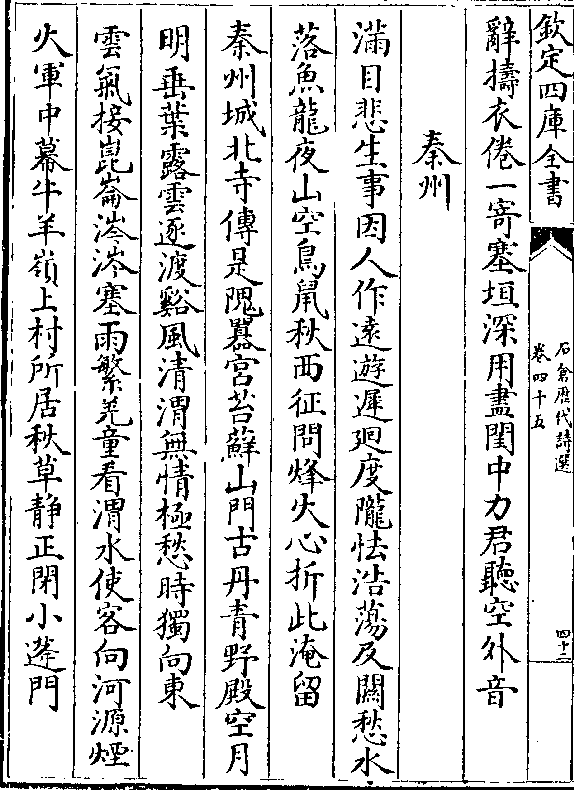 欽定四庫全書
石倉歴代詩選
卷四十五
四十二
辭擣衣倦一寄塞垣深用盡閨中力君聽空外音
秦州
滿目悲生事因人作遠遊遲廻度隴怯浩蕩及闗愁水
落魚龍夜山空鳥鼠秋西征問烽火心折此淹留
秦州城北寺傳是隗囂宮苔蘚山門古丹青野殿空月
明垂葉露雲逐渡谿風清渭無情極愁時獨向東
雲氣接崑崙涔涔塞雨繁羌童看渭水使客向河源煙
火軍中幕牛羊嶺上村所居秋草靜正閉小蓬門